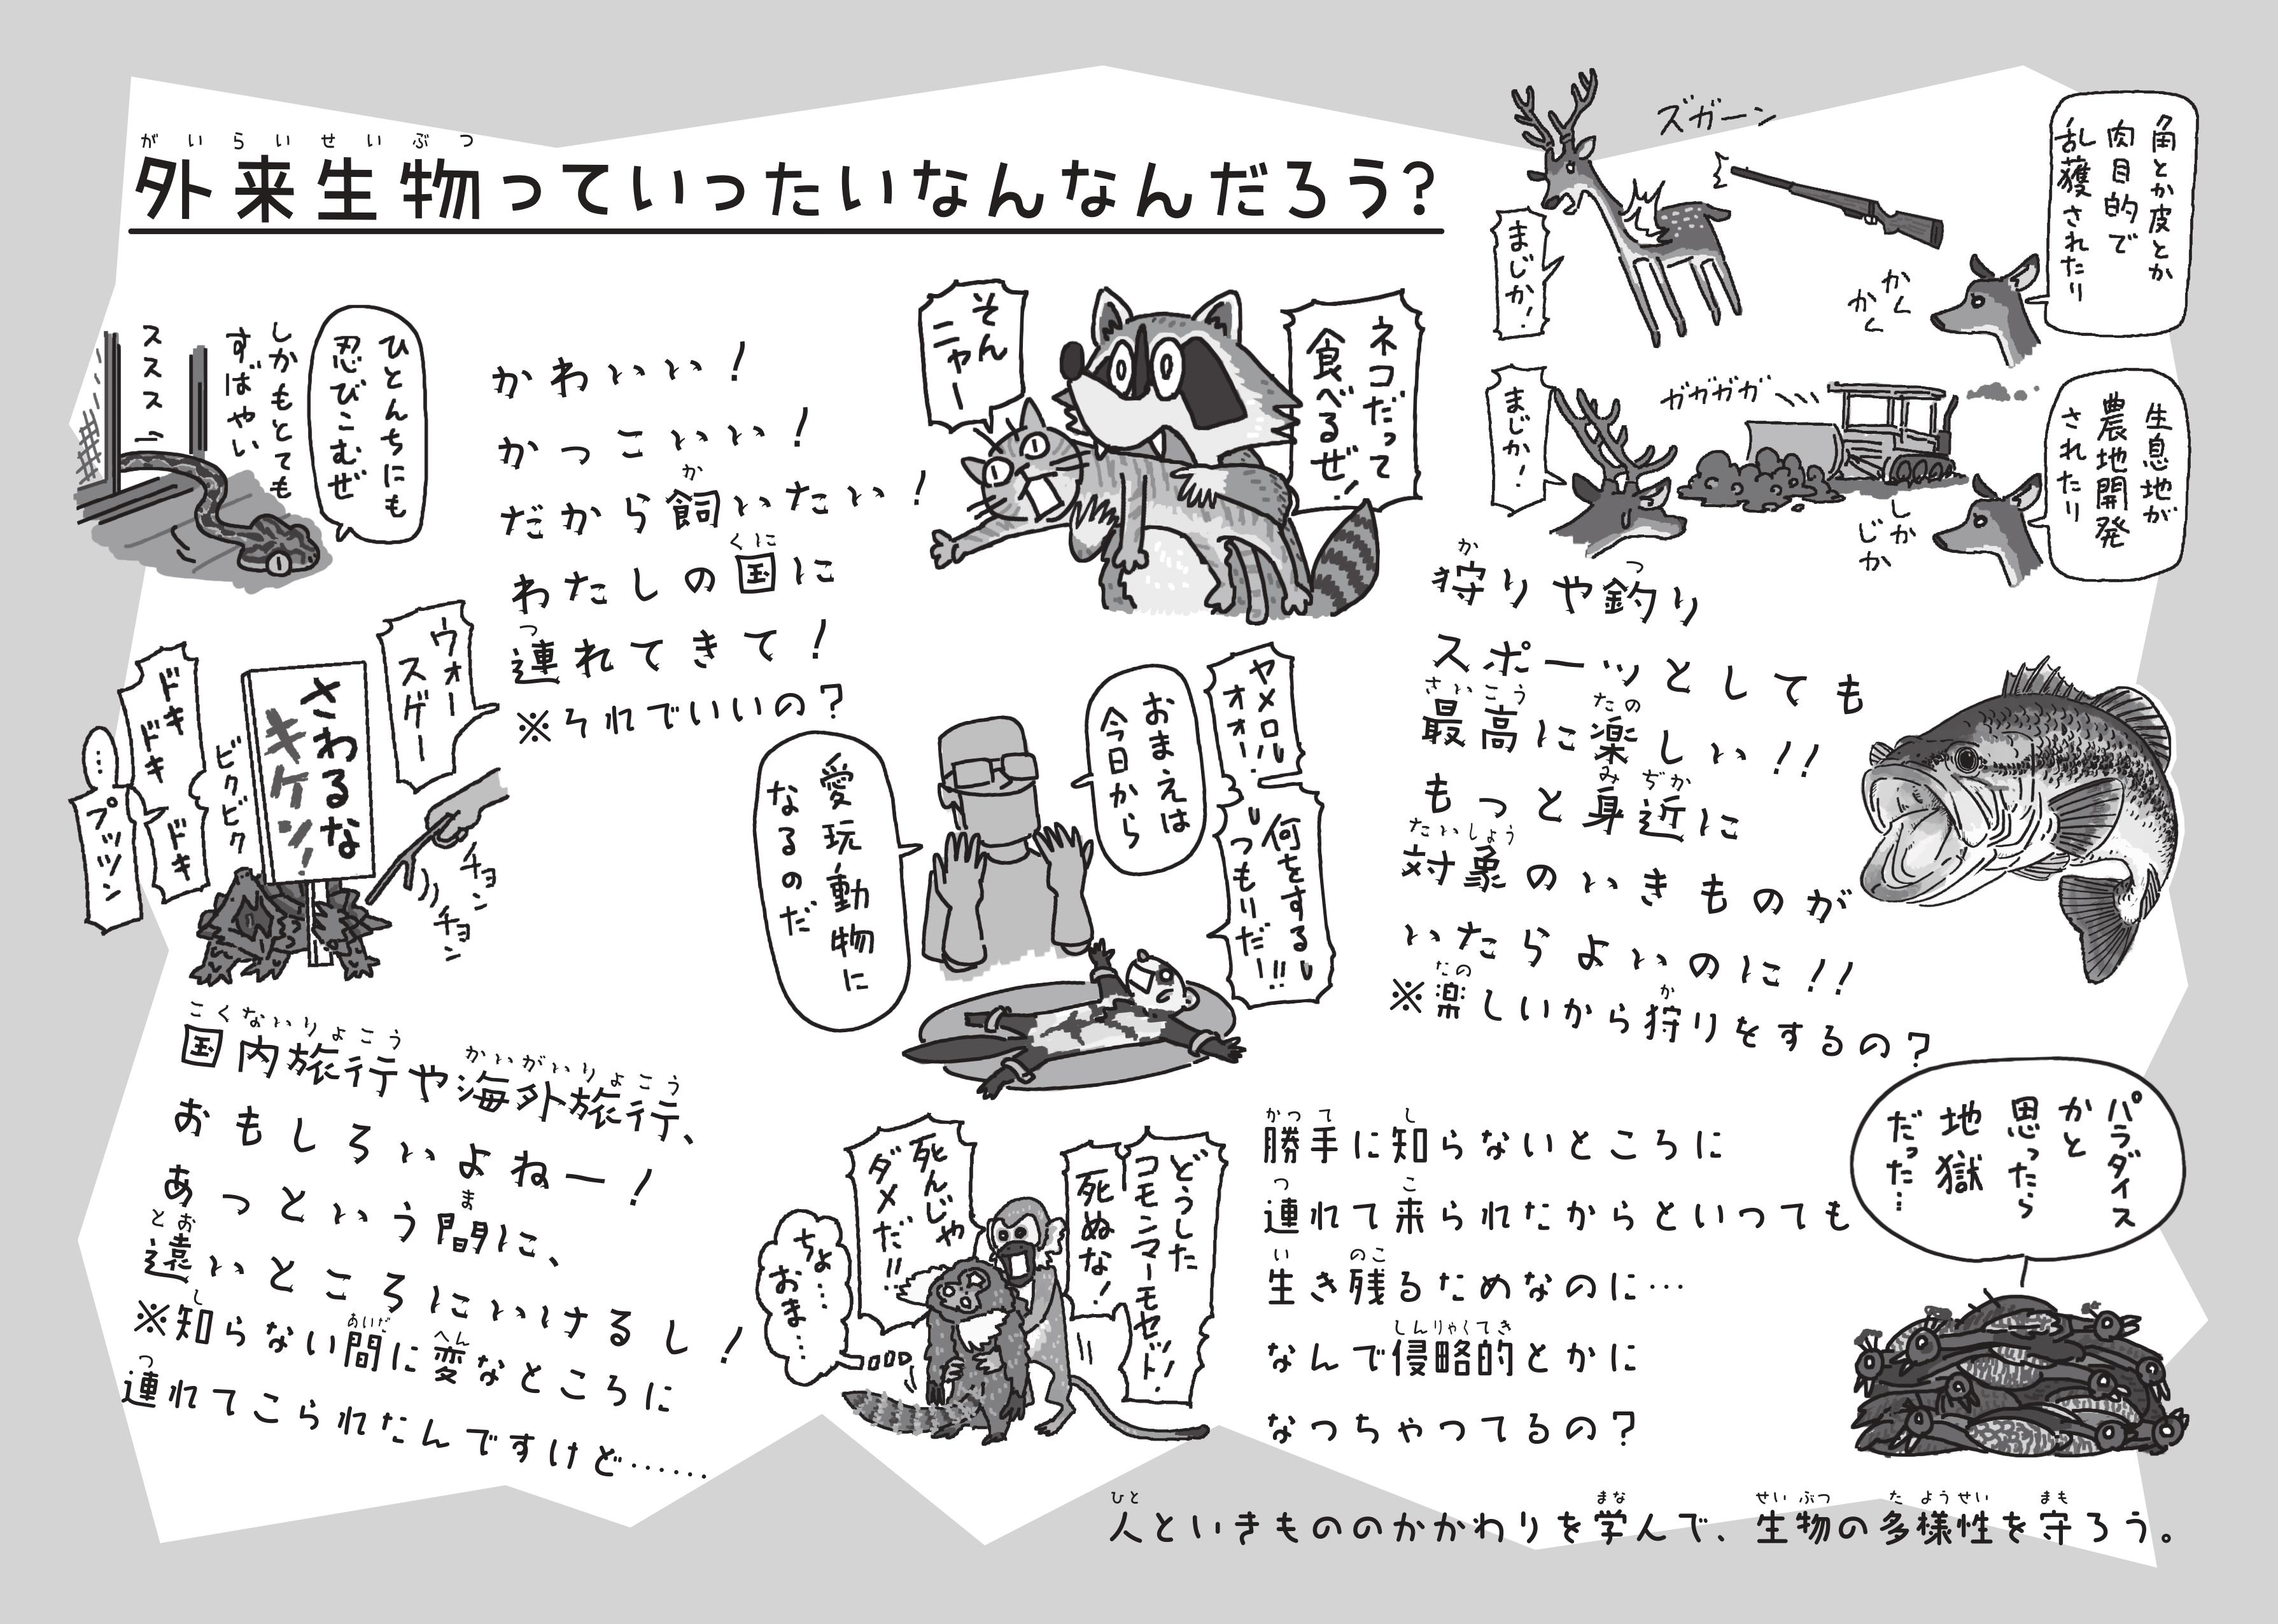 外来生物っていったいなんなんだろう?
がいらいせいぶつ
ひとんちにも
忍びこむぜ
しかもとても
すばやい
ススス
かわいい!
かっこいい!
だから飼いたい!
か
わたしの国に
くに
連れてきて!
つ
※それでいいの?
そん
ニャー
ネコだって
食べるぜ!
ズガーン
角とか皮とか
肉目的で
乱獲されたり
まじか!
かく
かく
生息地が
農地開発
されたり
ガガガガ
まじか!
しか
じか
狩りや釣り
か
つ
スポーツとしても
最高に楽しい!!
さいこう
たの
もっと身近に
みぢか
対象のいきものが
たいしょう
いたらよいのに!!
※楽しいから狩りをするの?
たの
か
ウォー
スゲー
さわるな
キケン!
ビクビク
ドキ
ドキ
ドキ
…
プッツン
チョン
チョン
国内旅行や海外旅行、
こくないりょこう
かいがいりょこう
おもしろいよねー!
あっという間に、
ま
遠いところにいけるし!
とお
※知らない間に変なところに
し
あいだ
へん
連れてこられたんですけど……
つ
ヤメロ!!
オォー!
何をする!!
つもりだー!!!
おまえは
今日から
愛玩動物に
なるのだ
どうした
コモンマーモセット!
死ぬな!
死んじゃ
ダメだ!!
ちょ…
おま…
勝手に知らないところに
かって
し
連れて来られたからといっても
つ
こ
生き残るためなのに…
い
のこ
なんで侵略的とかに
しんりゃくてき
なっちゃってるの?
パラダイス
かと
思ったら
地獄
だった…
人といきもののかかわりを学んで、生物の多様性を守ろう。
ひと
まな
せいぶつ
たようせい
まも